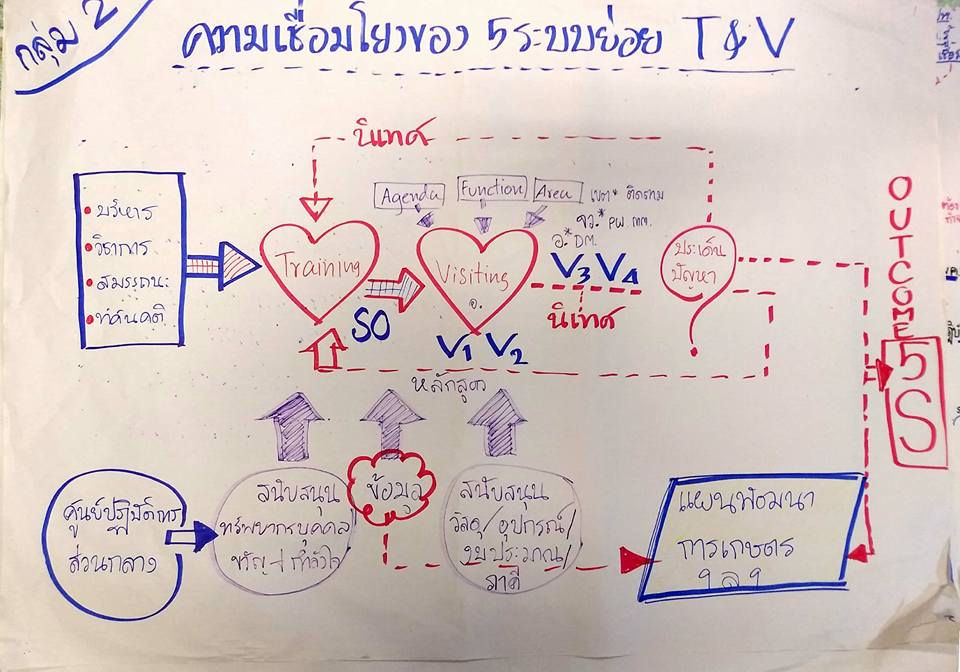 กลุ่ม 2
ความเชื่อมโยงของ 5 ระบบย่อย T & V
นิเทศ
Agenda
Function
Area
เขต* ติดตาม
จว.* PW. MM.
อ.* DM.
บริหาร
วิชาการ
สมรรถนะ
ทัศนคติ
Training
SO
Visiting
อ.
V1 V2
V3 V4
นิเทศ
ประเด็น
ปัญหา
OUTCOME
5S
หลักสูตร
ศูนย์ปฏิบัติการ
ส่วนกลาง
สนับสนุน
ทรัพยากรบุคคล
ขวัญ+กำลังใจ
ข้อมูล
สนับสนุน
วัสดุ/อุปกรณ์/
งบประมาณ/
ภาคี
แผนพัฒนา
การเกษตร